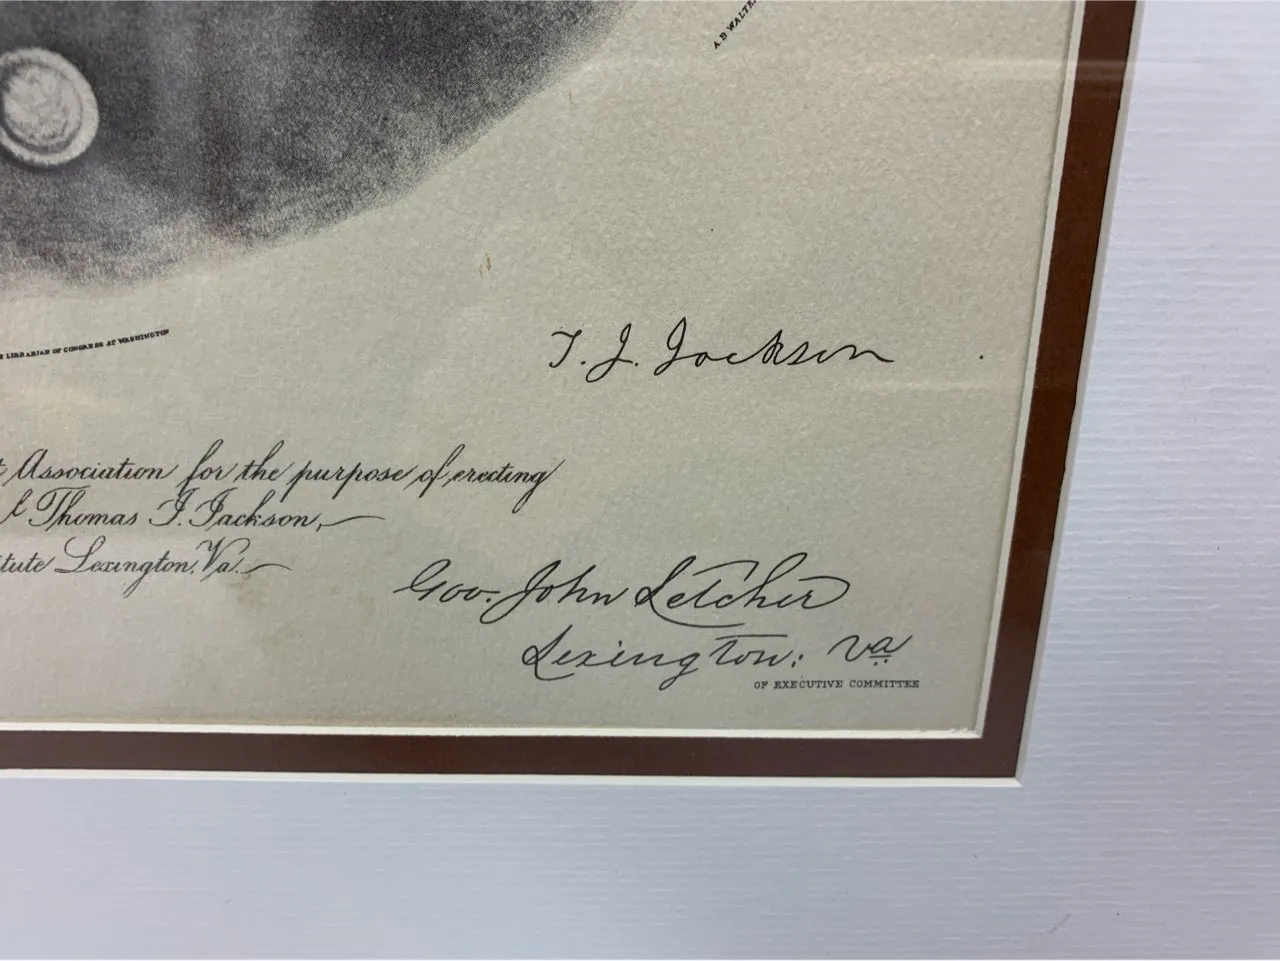 A. B. WALTE
LIBRARIAN OF CONGRESS AT WASHINGTON
T. J. Jackson
Association for the purpose of erecting
Thomas J. Jackson,
tute Lexington, Va.
Gov. John Letcher
Lexington: Va
OF EXECUTIVE COMMITTEE